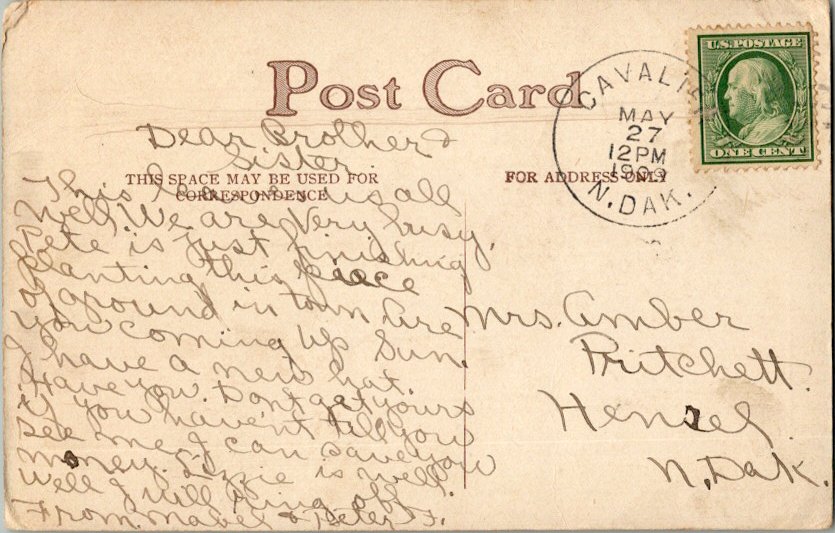 Post Card
CAVALIER
MAY
27
12PM
1909
N. DAK.
U.S. POSTAGE
ONE CENT
THIS SPACE MAY BE USED FOR
CORRESPONDENCE
FOR ADDRESS ONLY
Dear Brother &
Sister
This leaves us all
Well. We are Very busy,
Pete is just finishing
planting this piece
of ground in town Are
you coming up Sun.
I have a new hat.
Have you. Dont get yours
if you havent till you
see me I can save you
money. Lizzie is well.
Well I will ring off.
From. Mabel & Peter F.
Mrs. Amber
Pritchett.
Hensel
N. Dak.